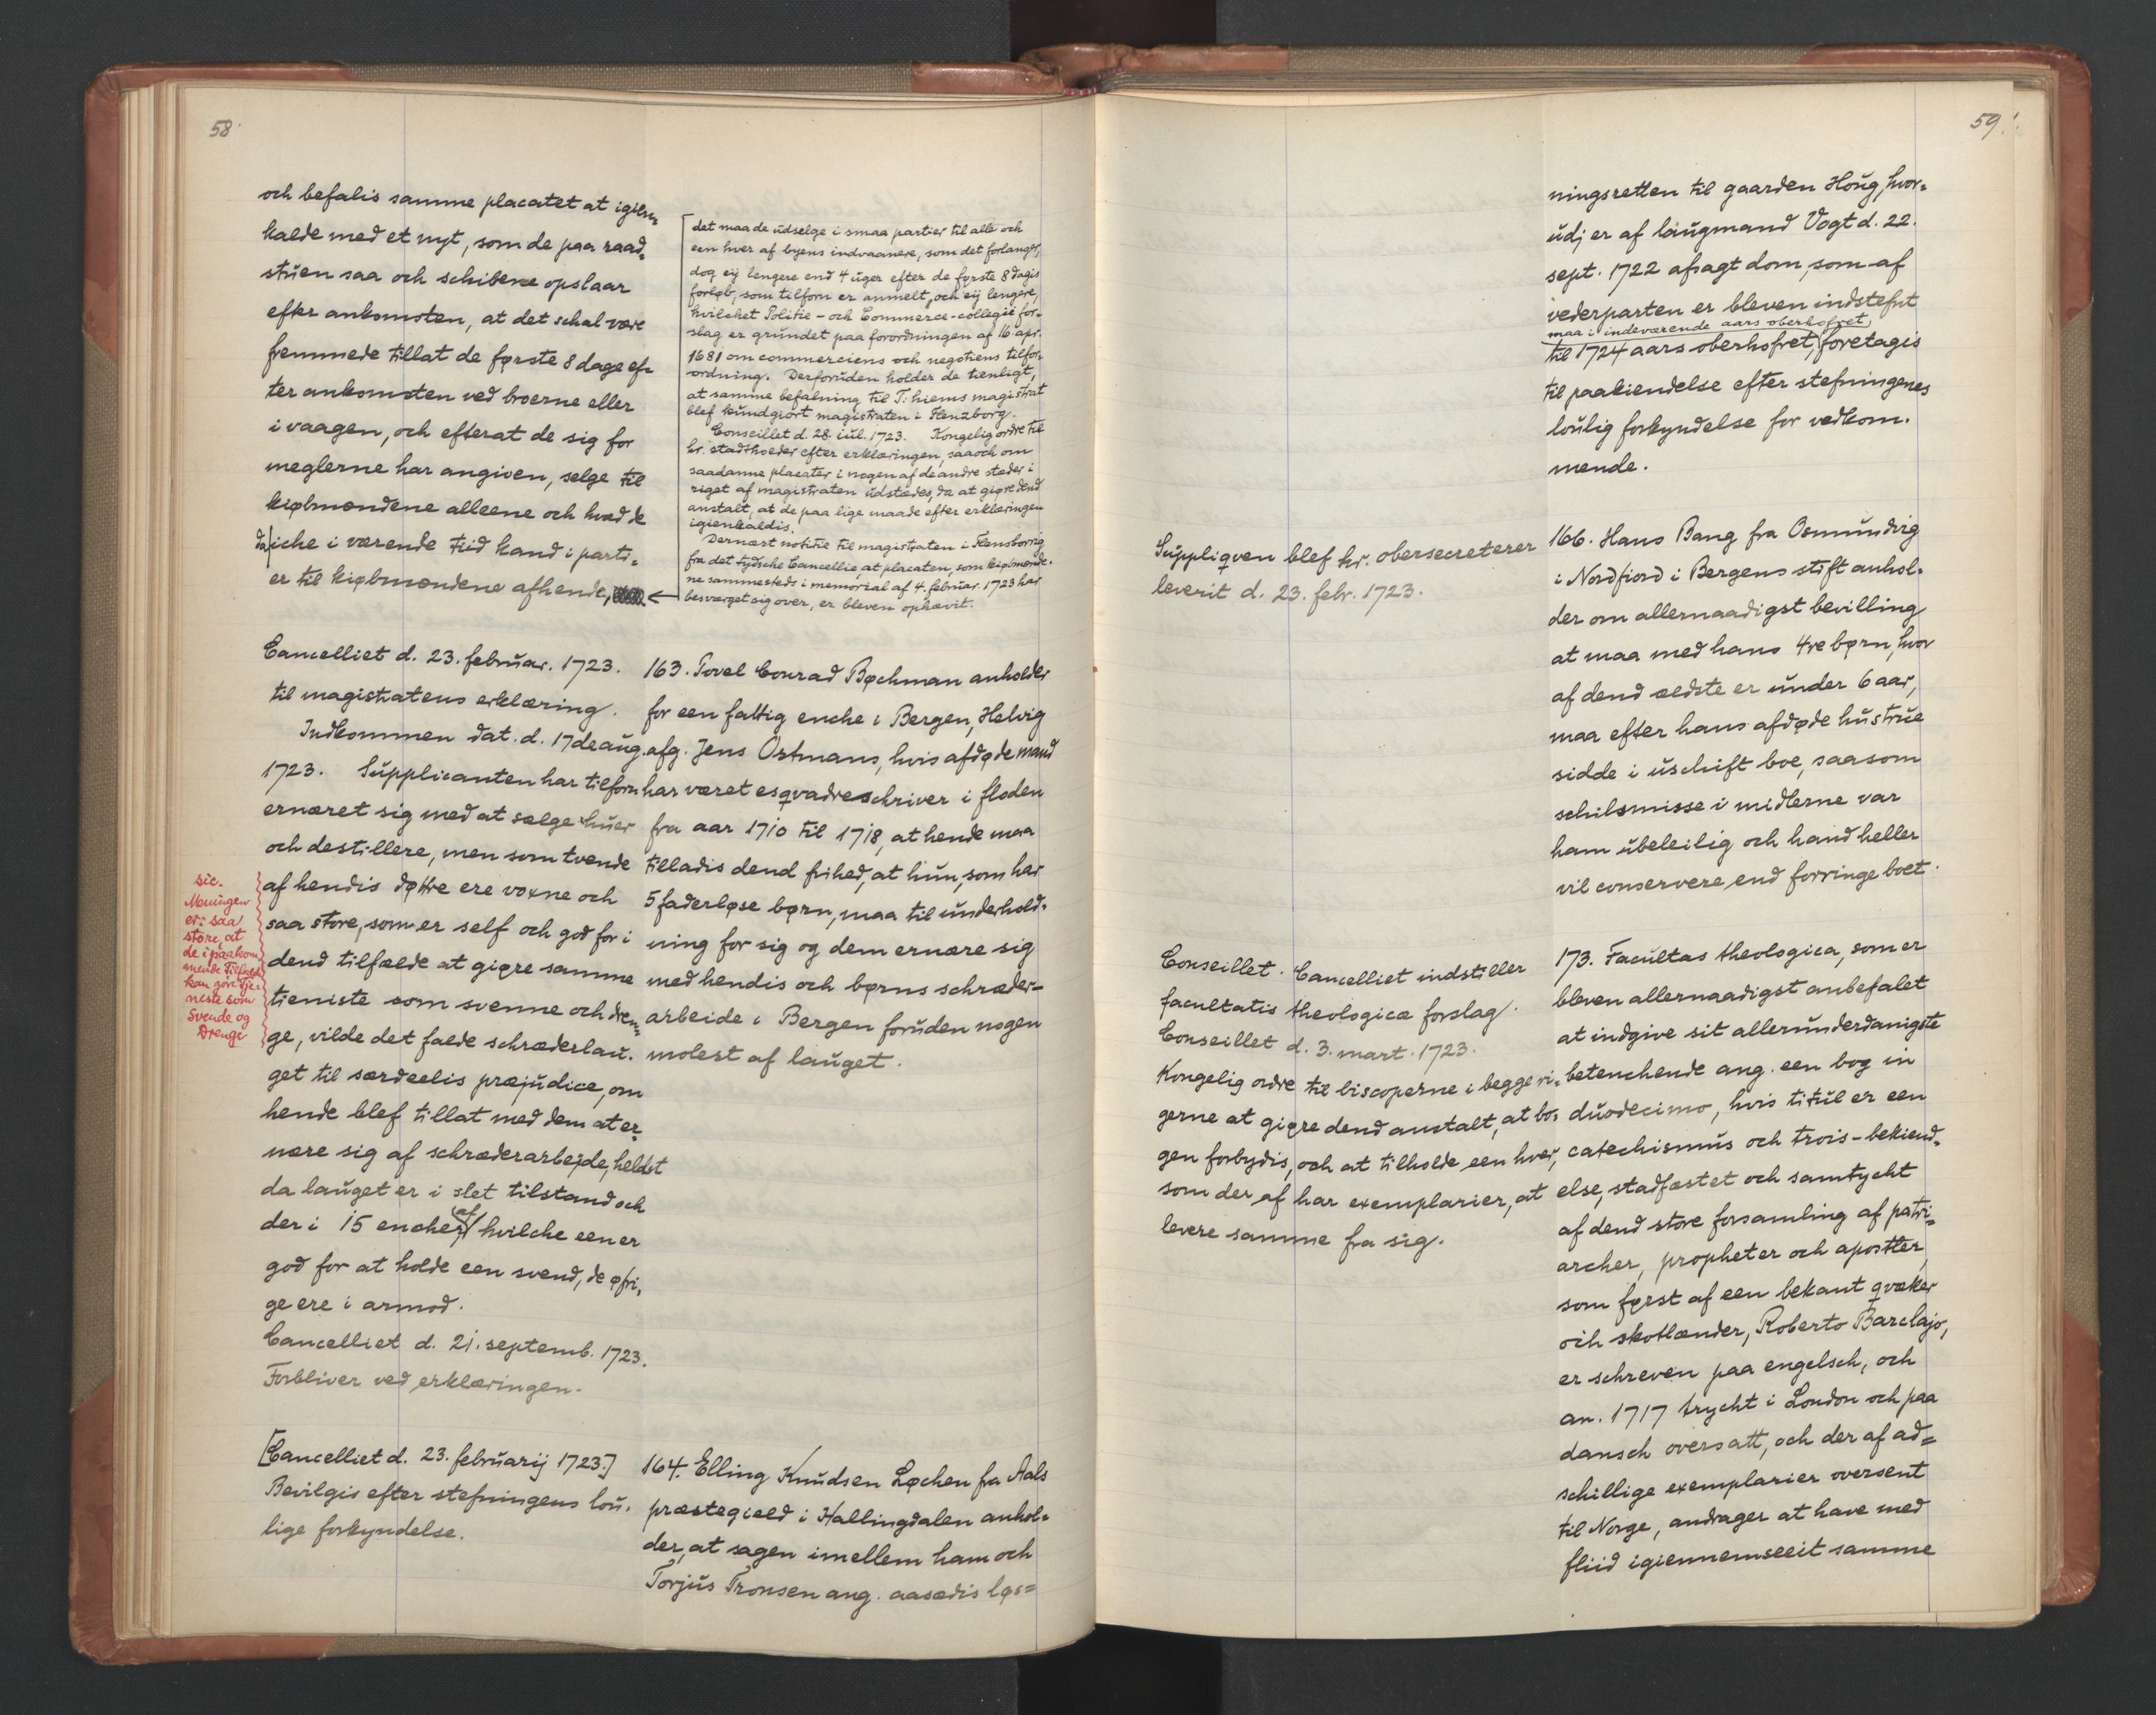 58
och befalis samme placatet at igien=
kalde med et nyt, som de paa raad=
stuen saa och schibene opslaar
efter ankomsten, at det schal være
fremmede tillat de første 8 dage ef=
ter ankomsten ved broerne eller
i vaagen, och efterat de sig for
meglerne har angiven, selge til
kiøbmændene alleene och hvad de
da iche i værende tiid kand i parti=
er til kiøbmændene afhende,
det maa de udselge i smaa partier til alle och
een hver af byens indvaanere, som det forlanger,
dog eij lengere end 4 uger efter de første 8 dagis
forløb, som tilforn er anmelt, och eij lengere,
hvilchet Politie- och Commerce-collegie for=
slag er grundet paa forordningen af 16. apr.
1681 om commerciens och negotiens tilfor=
ordning. Derforuden holder de tienligt,
at samme befalning til T: hiems magistrat
blef kundgiort magistraten i Flenzborg.
Conseillet d. 28. iul. 1723. Kongelig ordre til
hr. stadthoeder efter erklæringen, saa och om
saadanne placater i nogen af de andre stæder i
riget af magistraten udstædes, da at giøre dend
anstalt, at de paa lige maade efter erklæringen
igienkaldis.
Dernæst notitie til magistraten i Flensborrig
fra det tydsche Cancellie, at placaten, som kiøbmænde=
ne sammesteds i memorial af 4. februar. 1723 har
besværget sig over, er bleven ophævit.
Cancelliet d. 23. februar. 1723.
til magistratens erklæring.
Indkommen dat. d. 17de aug.
1723. Supplicanten har tilforn
ernæret sig med at sælge huer
och destillere, men som tvende
af hendis døttre ere voxne och
saa store, som er self och god for i
dend tilfælde at giøre samme
tieniste som svenne och dren=
ge, vilde det falde schræderlau=
get til særdeelis præjudice, om
hende blef tillat med dem at er=
nære sig af schræderarbejde, heldst
da lauget er i slet tilstand och
der i 15 encher, af hvilche een er
god for at holde een svend, de øfri=
ge ere i armod.
Cancelliet d. 21. septemb. 1723.
Forbliver ved erklæringen.
sic.
Meningen
er: saa
store, at
de i paakom
mende Tilfælde
kan gøre tje
neste som
Svende og
Drenge
163. Povel Conrad Bøchman anholder
for een fattig enche i Bergen, Helvig
afg. Jens Ostmans, hvis afdøde mand
har været esqvadreschriver i floden
fra aar 1710 til 1718, at hende maa
tilladis dend frihed, at hun, som har
5 faderløse børn, maa til underhold=
ning for sig og dem ernære sig
med hendis och børns schræder-
arbeide i Bergen foruden nogen
molest af lauget.
[Cancelliet d. 23. februarij 1723.]
Bevilgis efter stefningens lou=
lige forkyndelse.
164. Elling Knudsen Løchen fra Aals
præstegield i Hallingdalen anhol=
der, at sagen imellem ham och
Torjus Tronsen ang. aasædis løs=
59
ningsretten til gaarden Houg, hvor=
udj er af laugmand Vogt d. 22.
sept. 1722 afsagt dom, som af
vederparten er bleven indstefnt
maa i indeværende aars oberhofret
til 1724 aars oberhofret, foretagis
til paakiendelse efter stefningenes
loulig forkyndelse for vedkom=
mende.
Suppliqven blef hr. obersecreterer
leverit d. 23. febr. 1723.
166. Hans Bang fra Osmundvig
i Nordfiord i Bergens stift anhol=
der om allernaadigst bevilling
at maa med hans 4re børn, hvor
af dend ældste er under 6 aar,
maa efter hans afdøde hustrue
sidde i uschift boe, saasom
schilsmisse i midlerne var
ham ubeleilig och hand heller
vil conservere end forringe boet.
Conseillet. Cancelliet indstiller
facultatis theologicæ forslag.
Conseillet d. 3. mart. 1723.
Kongelig ordre til biscoperne i begge ri=
gerne at giøre dend anstalt, at bo=
gen forbydis, och at tilholde een hver,
som der af har exemplarier, at
levere samme fra sig.
173. Facultas theologica, som er
bleven allernaadigst anbefalet
at indgive sit allerunderdanigste
betenchende ang. een bog in
duodecimo, hvis titul er een
catechismus och trois-bekiend=
else, stadfæstet och samtycht
af dend store forsamling af patri=
archer, propheter och apostler,
som først af een bekant qvæker
och skotlænder, Roberto Barclajo,
er schreven paa engelsch, och
an. 1717 trycht i London och paa
dansch oversatt, och der af ad=
schillige exemplarier oversent
til Norge, andrager at have med
fliid igiennemseeit samme